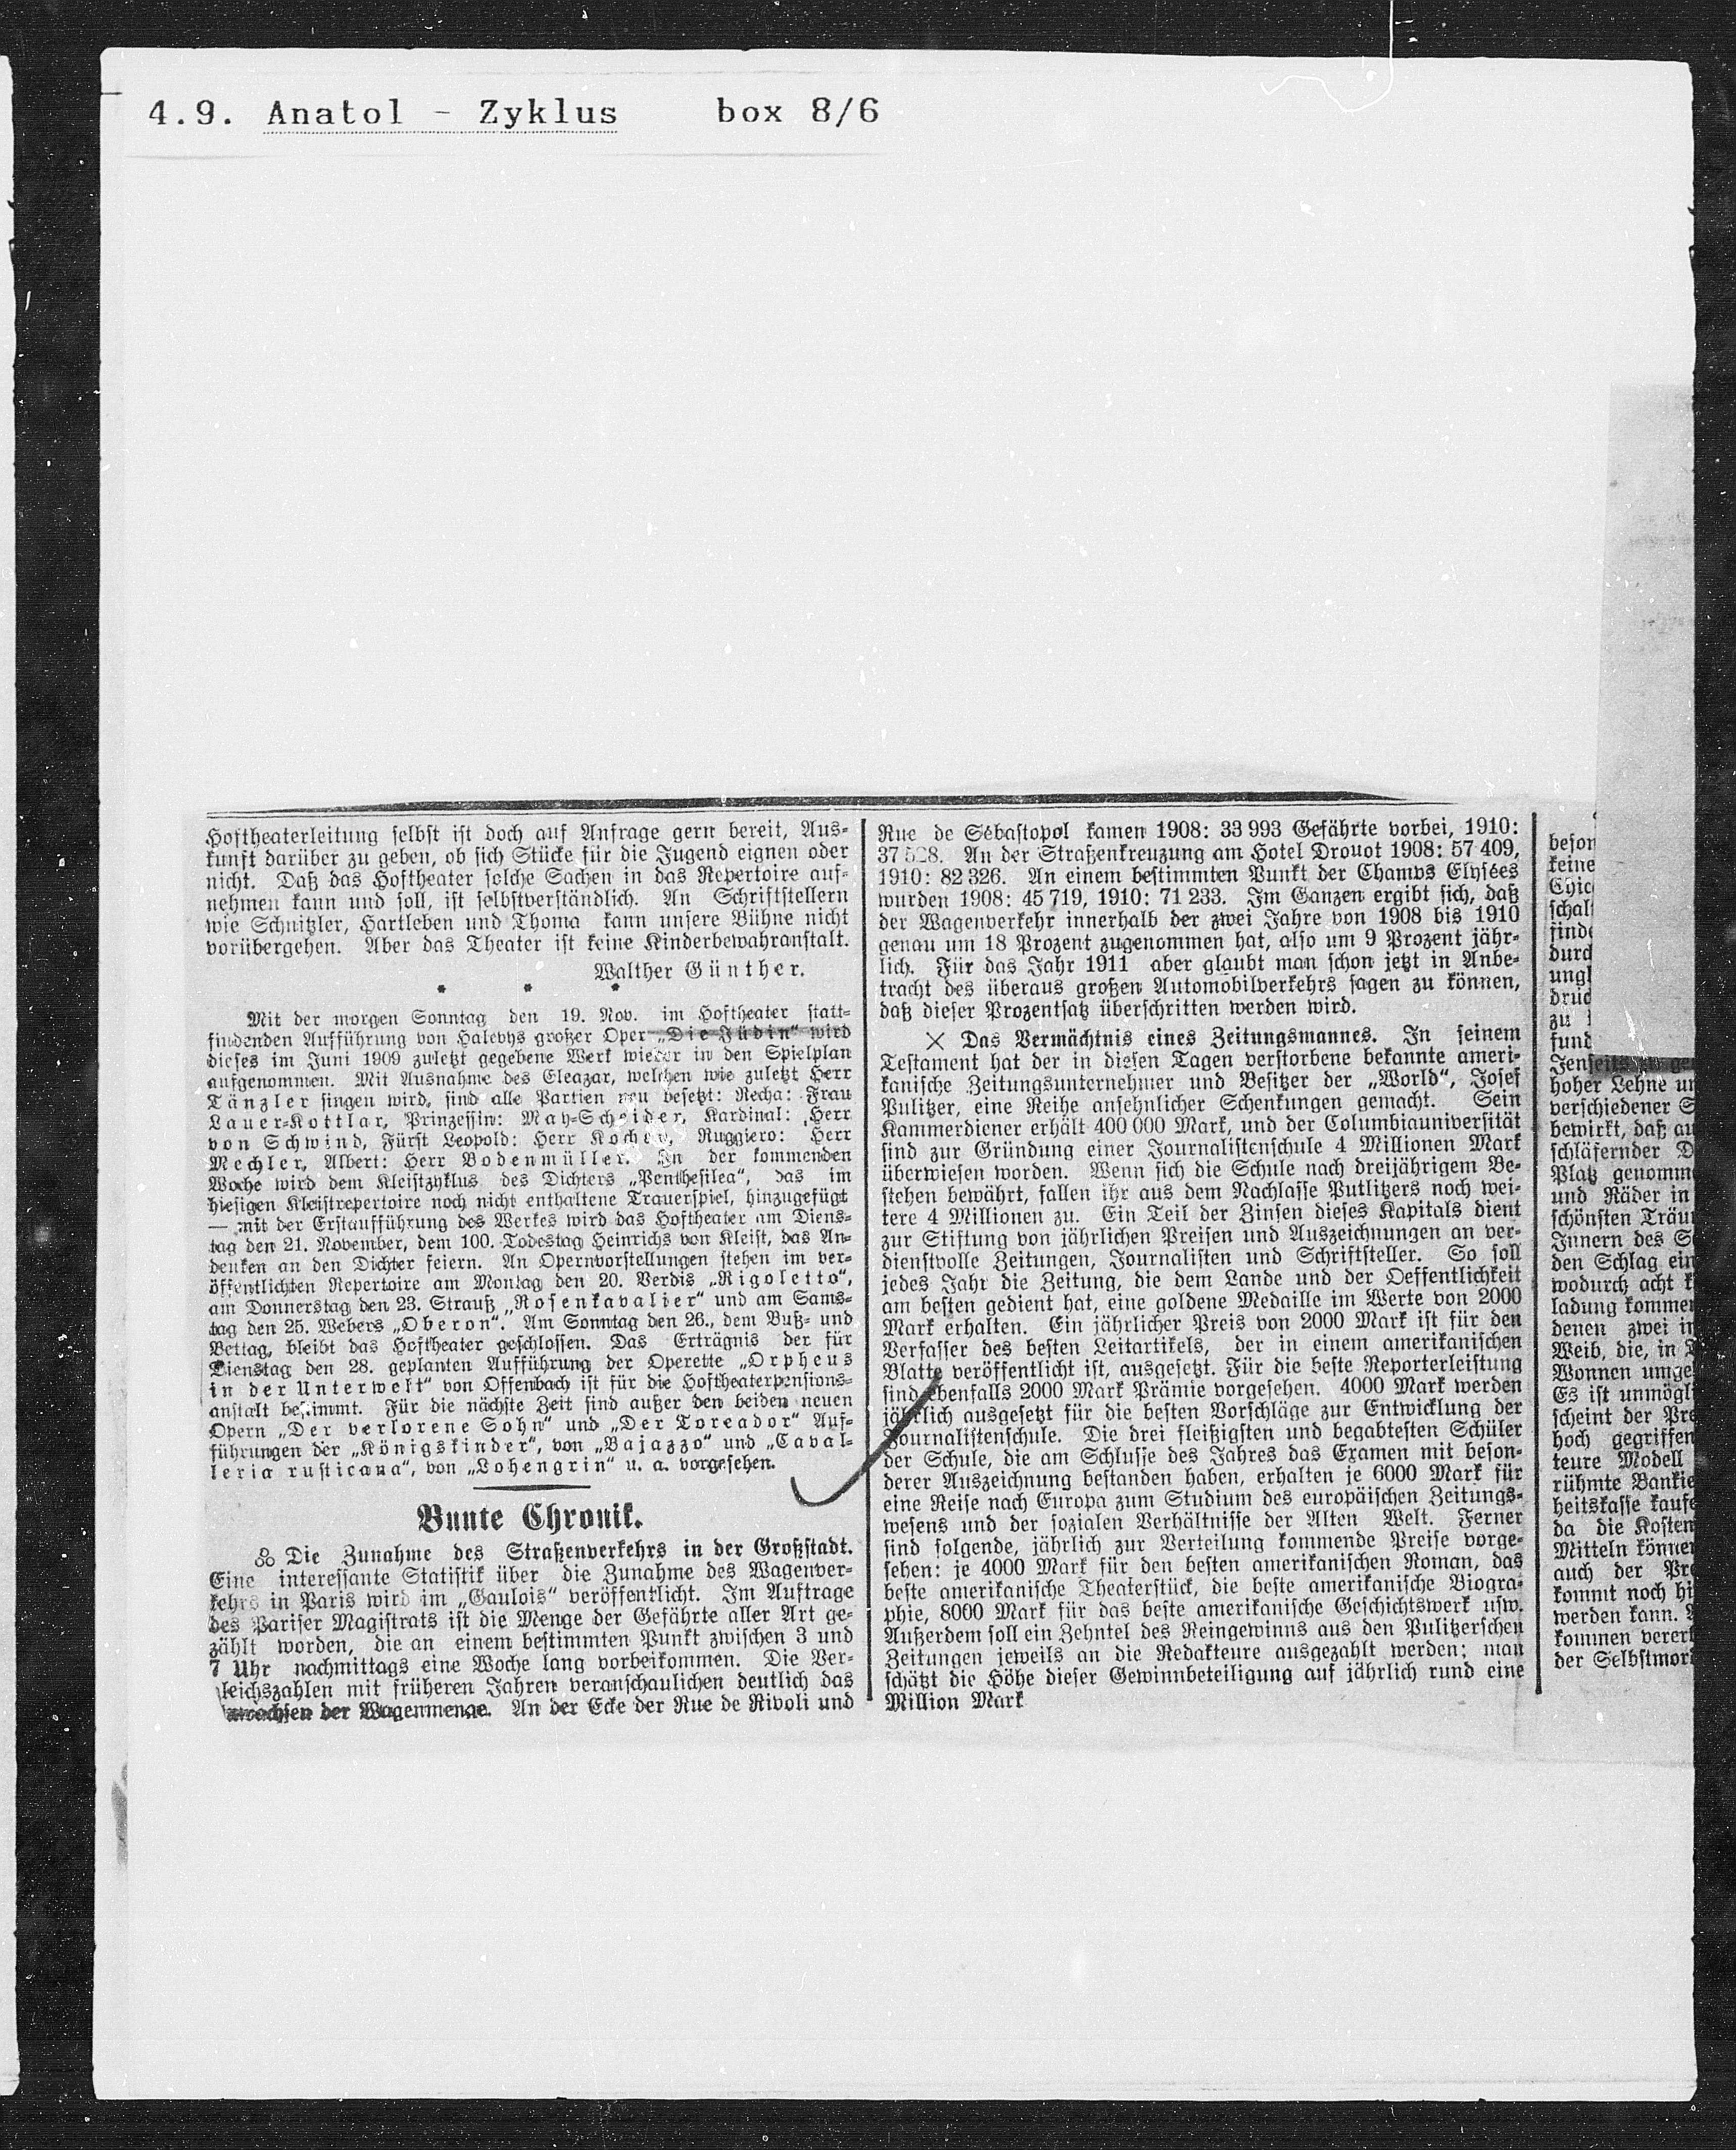 4.9. Anatol - Zyklus box 8/6
Hoftheaterleitung selbst ist doch auf Anfrage gern bereit, Aus-
kunft darüber zu geben, ob sich Stücke für die Jugend eignen oder
nicht. Daß das Hoftheater solche Sachen in das Repertoire auf-
nehmen kann und soll, ist selbstverständlich. An Schriftstellern
wie Schnitzler, Hartleben und Thoma kann unsere Bühne nicht
vorübergehen. Aber das Theater ist keine Kinderbewahranstalt.
Walther Günther.
* * *
Mit der morgen Sonntag den 19. Nov. im Hoftheater statt-
findenden Aufführung von Halevys großer Oper „Die Jüdin“ wird
dieses im Juni 1909 zuletzt gegebene Werk wieder in den Spielplan
aufgenommen. Mit Ausnahme des Eleazar, welchen wie zuletzt Herr
Tänzler singen wird, sind alle Partien neu besetzt: Recha: Frau
Lauer-Kottlar, Prinzessin: May-Scheider, Kardinal: Herr
von Schwind, Fürst Leopold: Herr Ruggiero: Herr
Mechler, Albert: Herr Bodenmüller. In der kommenden
Woche wird dem Kleistzyklus des Dichters „Penthesilea“, das im
hiesigen Kleistrepertoire noch nicht enthaltene Trauerspiel, hinzugefügt
— mit der Erstaufführung des Werkes wird das Hoftheater am Diens-
tag den 21. November, dem 100. Todestag Heinrichs von Kleist, das An-
denken an den Dichter feiern. An Opernvorstellungen stehen im ver-
öffentlichten Repertoire am Montag den 20. Verdis „Rigoletto“,
am Donnerstag den 23. Strauß „Rosenkavalier“ und am Sams-
tag den 25. Webers „Oberon“. Am Sonntag den 26., dem Buß- und
Bettag, bleibt das Hoftheater geschlossen. Das Erträgnis der für
Dienstag den 28. geplanten Aufführung der Operette „Orpheus
in der Unterwelt“ von Offenbach ist für die Hoftheaterpensions-
anstalt bestimmt. Für die nächste Zeit sind außer den beiden neuen
Opern „Der verlorene Sohn“ und „Der Toreador“ Auf-
führungen der „Königskinder“, von „Bajazzo“ und „Caval-
leria rusticana“, von „Lohengrin“ u. a. vorgesehen.
Bunte Chronik.
Die Zunahme des Straßenverkehrs in der Großstadt.
Eine interessante Statistik über die Zunahme des Wagenver-
kehrs in Paris wird im „Gaulois“ veröffentlicht. Im Auftrage
des Pariser Magistrats ist die Menge der Gefährte aller Art ge-
zählt worden, die an einem bestimmten Punkt zwischen 3 und
7 Uhr nachmittags eine Woche lang vorbeikommen. Die Ver-
leichszahlen mit früheren Jahren veranschaulichen deutlich das
der Wagenmenge. An der Ecke der Rue de Rivoli und
Rue de Sébastopol kamen 1908: 33 993 Gefährte vorbei, 1910:
An der Straßenkreuzung am Hotel Drouot 1908: 57 409,
1910: 82 326. An einem bestimmten Punkt der Champs Elysées
wurden 1908: 45 719, 1910: 71 233. Im Ganzen ergibt sich, daß
der Wagenverkehr innerhalb der zwei Jahre von 1908 bis 1910
genau um 18 Prozent zugenommen hat, also um 9 Prozent jähr-
lich. Für das Jahr 1911 aber glaubt man schon jetzt in Anbe-
tracht des überaus großen Automobilverkehrs sagen zu können,
daß dieser Prozentsatz überschritten werden wird.
× Das Vermächtnis eines Zeitungsmannes. In seinem
Testament hat der in diesen Tagen verstorbene bekannte ameri-
kanische Zeitungsunternehmer und Besitzer der „World“, Josef
Pulitzer, eine Reihe ansehnlicher Schenkungen gemacht. Sein
Kammerdiener erhält 400 000 Mark, und der Columbiauniversität
sind zur Gründung einer Journalistenschule 4 Millionen Mark
überwiesen worden. Wenn sich die Schule nach dreijährigem Be-
stehen bewährt, fallen ihr aus dem Nachlasse Putlitzers noch wei-
tere 4 Millionen zu. Ein Teil der Zinsen dieses Kapitals dient
zur Stiftung von jährlichen Preisen und Auszeichnungen an ver-
dienstvolle Zeitungen, Journalisten und Schriftsteller. So soll
jedes Jahr die Zeitung, die dem Lande und der Oeffentlichkeit
am besten gedient hat, eine goldene Medaille im Werte von 2000
Mark erhalten. Ein jährlicher Preis von 2000 Mark ist für den
Verfasser des besten Leitartikels, der in einem amerikanischen
Blatte veröffentlicht ist, ausgesetzt. Für die beste Reporterleistung
sind ebenfalls 2000 Mark Prämie vorgesehen. 4000 Mark werden
jährlich ausgesetzt für die besten Vorschläge zur Entwicklung der
Journalistenschule. Die drei fleißigsten und begabtesten Schüler
der Schule, die am Schlusse des Jahres das Examen mit beson-
derer Auszeichnung bestanden haben, erhalten je 6000 Mark für
eine Reise nach Europa zum Studium des europäischen Zeitungs-
wesens und der sozialen Verhältnisse der Alten Welt. Ferner
sind folgende, jährlich zur Verteilung kommende Preise vorge-
sehen: je 4000 Mark für den besten amerikanischen Roman, das
beste amerikanische Theaterstück, die beste amerikanische Biogra-
phie, 8000 Mark für das beste amerikanische Geschichtswerk usw.
Außerdem soll ein Zehntel des Reingewinns aus den Pulitzerschen
Zeitungen jeweils an die Redakteure ausgezahlt werden; man
schätzt die Höhe dieser Gewinnbeteiligung auf jährlich rund eine
Million Mark
beson
keine
schal
finde
durch
ungl
druck
zu
fund
Jenseits
hoher Lehne un
verschiedener S
bewirkt, daß au
schläfernder D
Platz genomme
und Räder in
schönsten Träum
Innern des S
den Schlag ein
wodurch acht K
ladung kommen
denen zwei in
Weib, die, in
Wonnen umge
Es ist unmögli
scheint der Pre
hoch gegriffen
teure Modell
rühmte Bankie
heitskasse kaufe
da die Kosten
Mitteln können
auch der Pre
kommt noch hi
werden kann.
kommen vererb
der Selbstmord